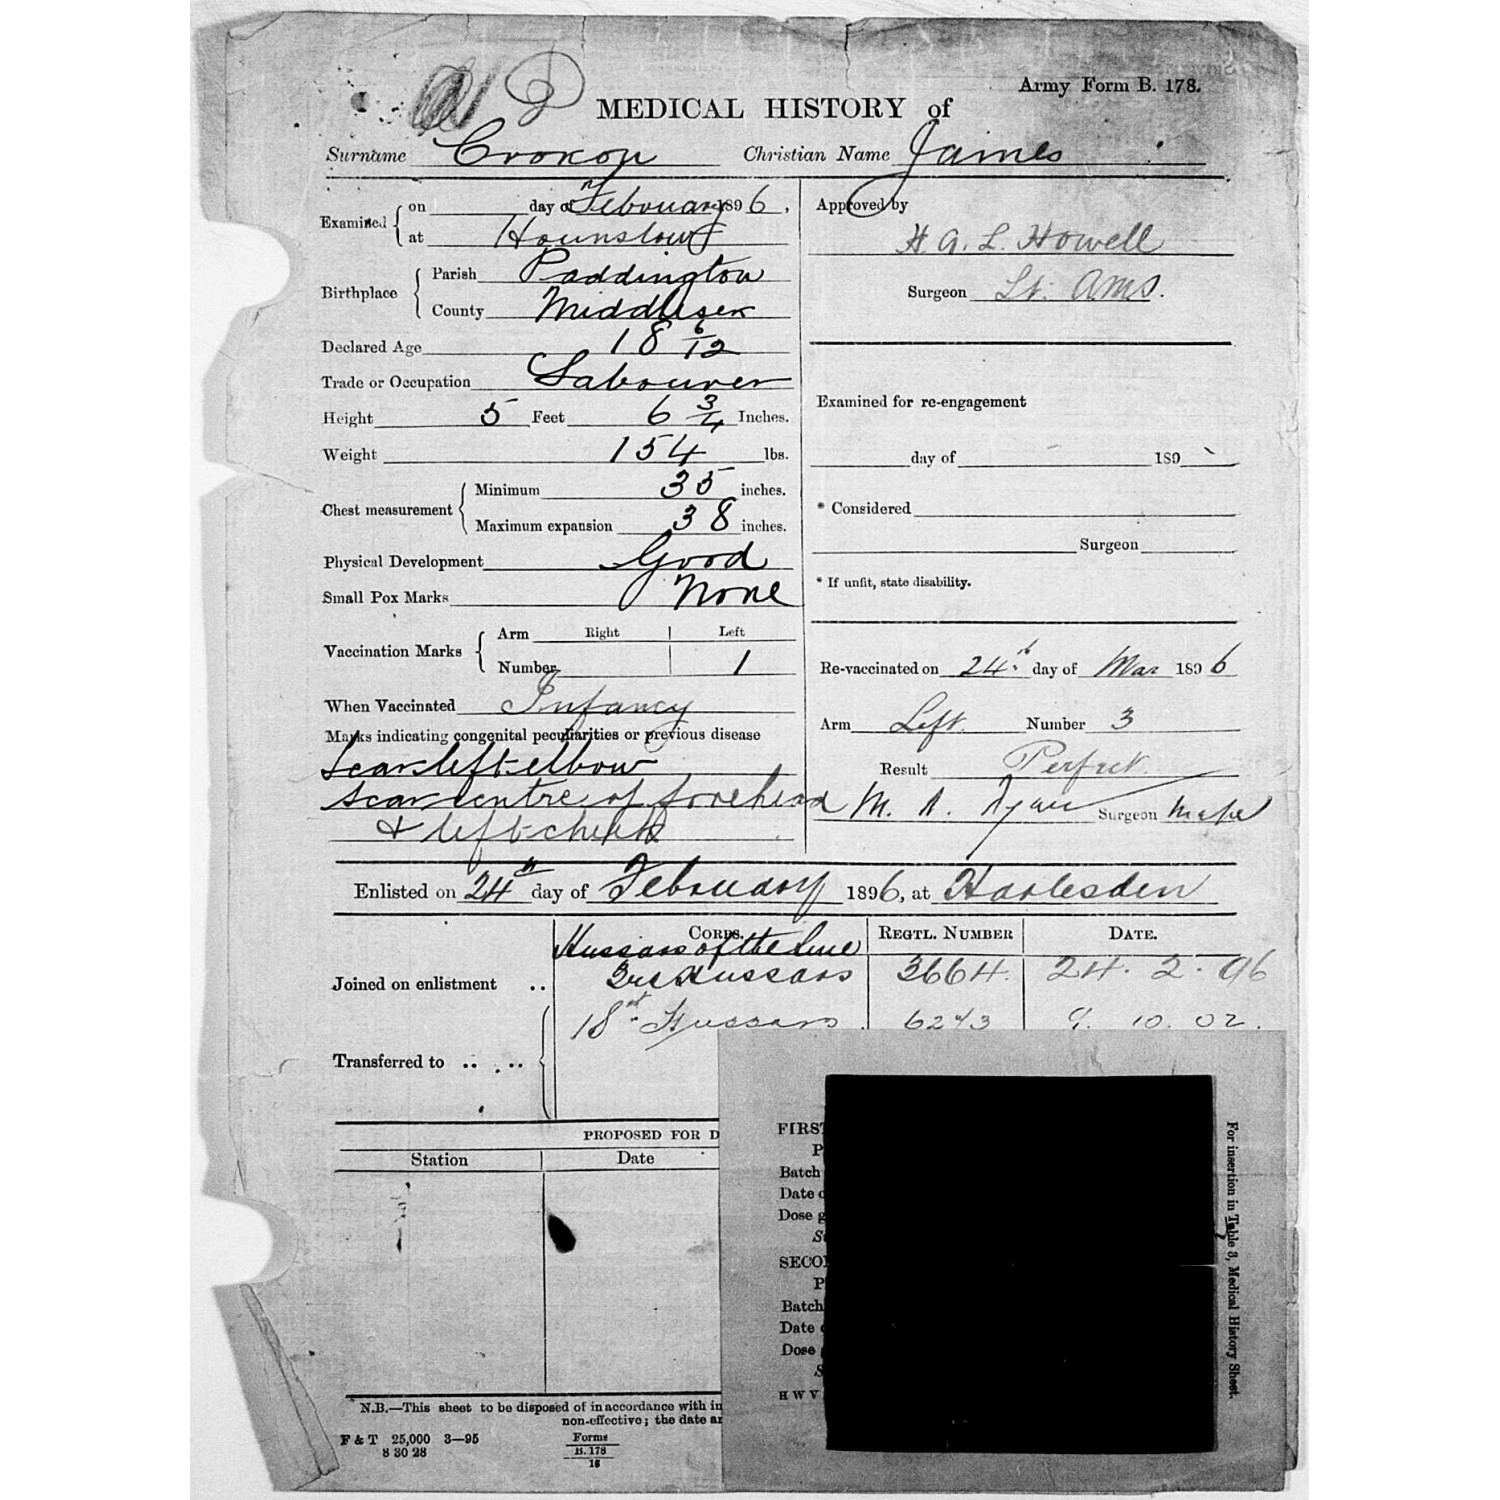 Army Form B. 178.
MEDICAL HISTORY of
Surname Croxon Christian Name James
Examined on day of Febouary 1896,
at Hounslow
Birthplace Parish Paddington
County Middlesex
Declared Age 18 6/12
Trade or Occupation Labourer
Height 5 Feet 6 3/4 Inches.
Weight 154 lbs.
Chest measurement Minimum 35 inches.
Maximum expansion 38 inches.
Physical Development Good
Small Pox Marks None
Vaccination Marks Arm Right Left
Number 1
When Vaccinated Infancy
Marks indicating congenital peculiarities or previous disease
Scar left elbow
scar centre of forehead
& left cheek
Approved by
H G. L. Howell
Surgeon Lt. AMS.
Examined for re-engagement
day of 189
* Considered
Surgeon
* If unfit, state disability.
Re-vaccinated on 24th day of Mar 1896
Arm Left Number 3
Result Perfect
M. Ryan Surgeon
Enlisted on 24th day of Febouary 1896, at Harlesden
CORPS. REGTL. NUMBER DATE.
Hussars of the Line
Joined on enlistment .. 3rd Hussars 3664. 24. 2. 96
18th Hussars 6243 9. 10. 02.
Transferred to .. ..
PROPOSED FOR D
Station Date
N.B.—This sheet to be disposed of in accordance with in
non-effective; the date an
F & T 25,000 3—95
8 30 28
Forms
B. 178
16
FIRST
P
Batch
Date o
Dose g
Su
SECO
P
Batch
Date
Dose
S
H W V
For insertion in Table 8, Medical History Sheet.